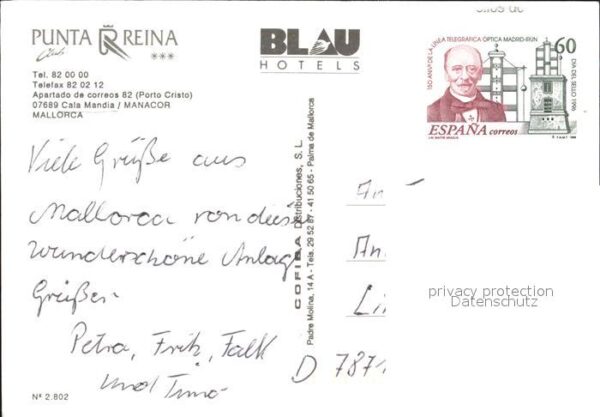 PUNTA REINA
Club ***
Tel. 82 00 00
Telefax 82 02 12
Apartado de correos 82 (Porto Cristo)
07689 Cala Mandia / MANACOR
MALLORCA
BLAU
HOTELS
150 ANIVº DE LA LINEA TELEGRAFICA OPTICA MADRID-IRUN
60
DIA DEL SELLO 1996
ESPAÑA correos
Viele Grüße aus
Mallorca von dieser
wunderschöne Anlage
Grüßen
Petra, Fritz, Falk
und Timo
Nº 2.802
COFIBA Distribuciones, S. L.
Padre Molina, 14 A - Tels. 29 52 87 - 41 50 65 - Palma de Mallorca
An
An
Li
D 787
privacy protection
Datenschutz